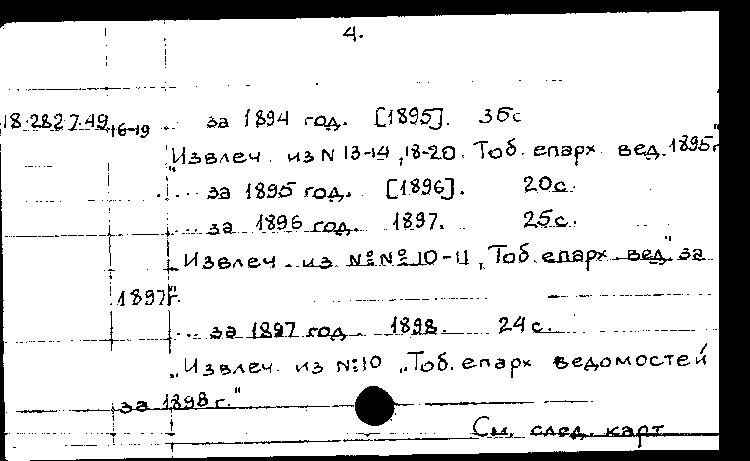 4.
18.282.7.49 16-19 ... за 1894 год. [1895]. 35с
"Извлеч. из N 13-14, 18-20. Тоб. епарх. вед. 1895г"
... за 1895 год. [1896]. 20с.
... за 1896 год. 1897. 25с.
"Извлеч. из №№ 10-11, Тоб. епарх. вед." за
1897г.
... за 1897 год 1898. 24с.
"Извлеч. из №10 "Тоб. епарх ведомостей
за 1898г."
См. след. карт.